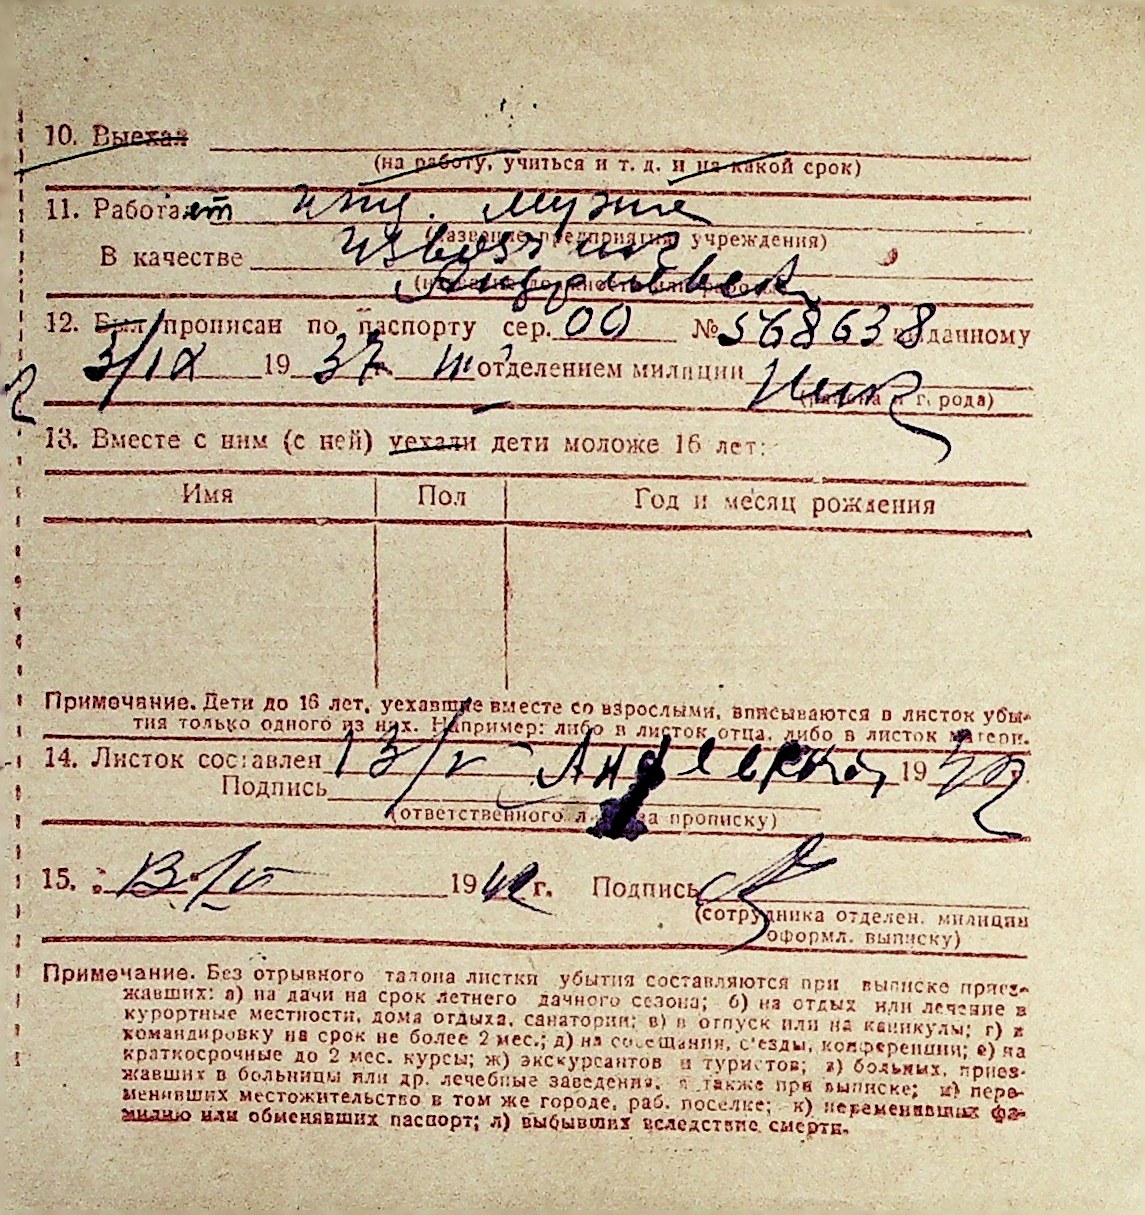 10. Выехал
(на работу, учиться и т. д. и на какой срок)
11. Работает ижд. мужа
(название предприятия, учреждения)
В качестве
12. Был прописан по паспорту сер. 00 № 568638 выданному
3/IX 1937 г. III отделением милиции
(района и города)
13. Вместе с ним (с ней) уехали дети моложе 16 лет:
Имя Пол Год и месяц рождения
Примечание. Дети до 16 лет, уехавшие вместе со взрослыми, вписываются в листок убы-
тия только одного из них. Например: либо в листок отца, либо в листок матери.
14. Листок составлен 13/V 19 г.
Подпись
(ответственного за прописку)
15. 13/V 19 г. Подпись
(сотрудника отделен. милиции
оформл. выписку)
Примечание. Без отрывного талона листки убытия составляются при выписке приез-
жавших: а) на дачи на срок летнего дачного сезона; б) на отдых или лечение в
курортные местности, дома отдыха, санатории; в) в отпуск или на каникулы; г) в
командировку на срок не более 2 мес.; д) на совещания, с'езды, конференции; е) на
краткосрочные до 2 мес. курсы; ж) экскурсантов и туристов; з) больных, приез-
жавших в больницы или др. лечебные заведения, а также при выписке; и) пере-
менивших местожительство в том же городе, раб. поселке; к) переменивших фа-
милию или обменявших паспорт; л) выбывших вследствие смерти.